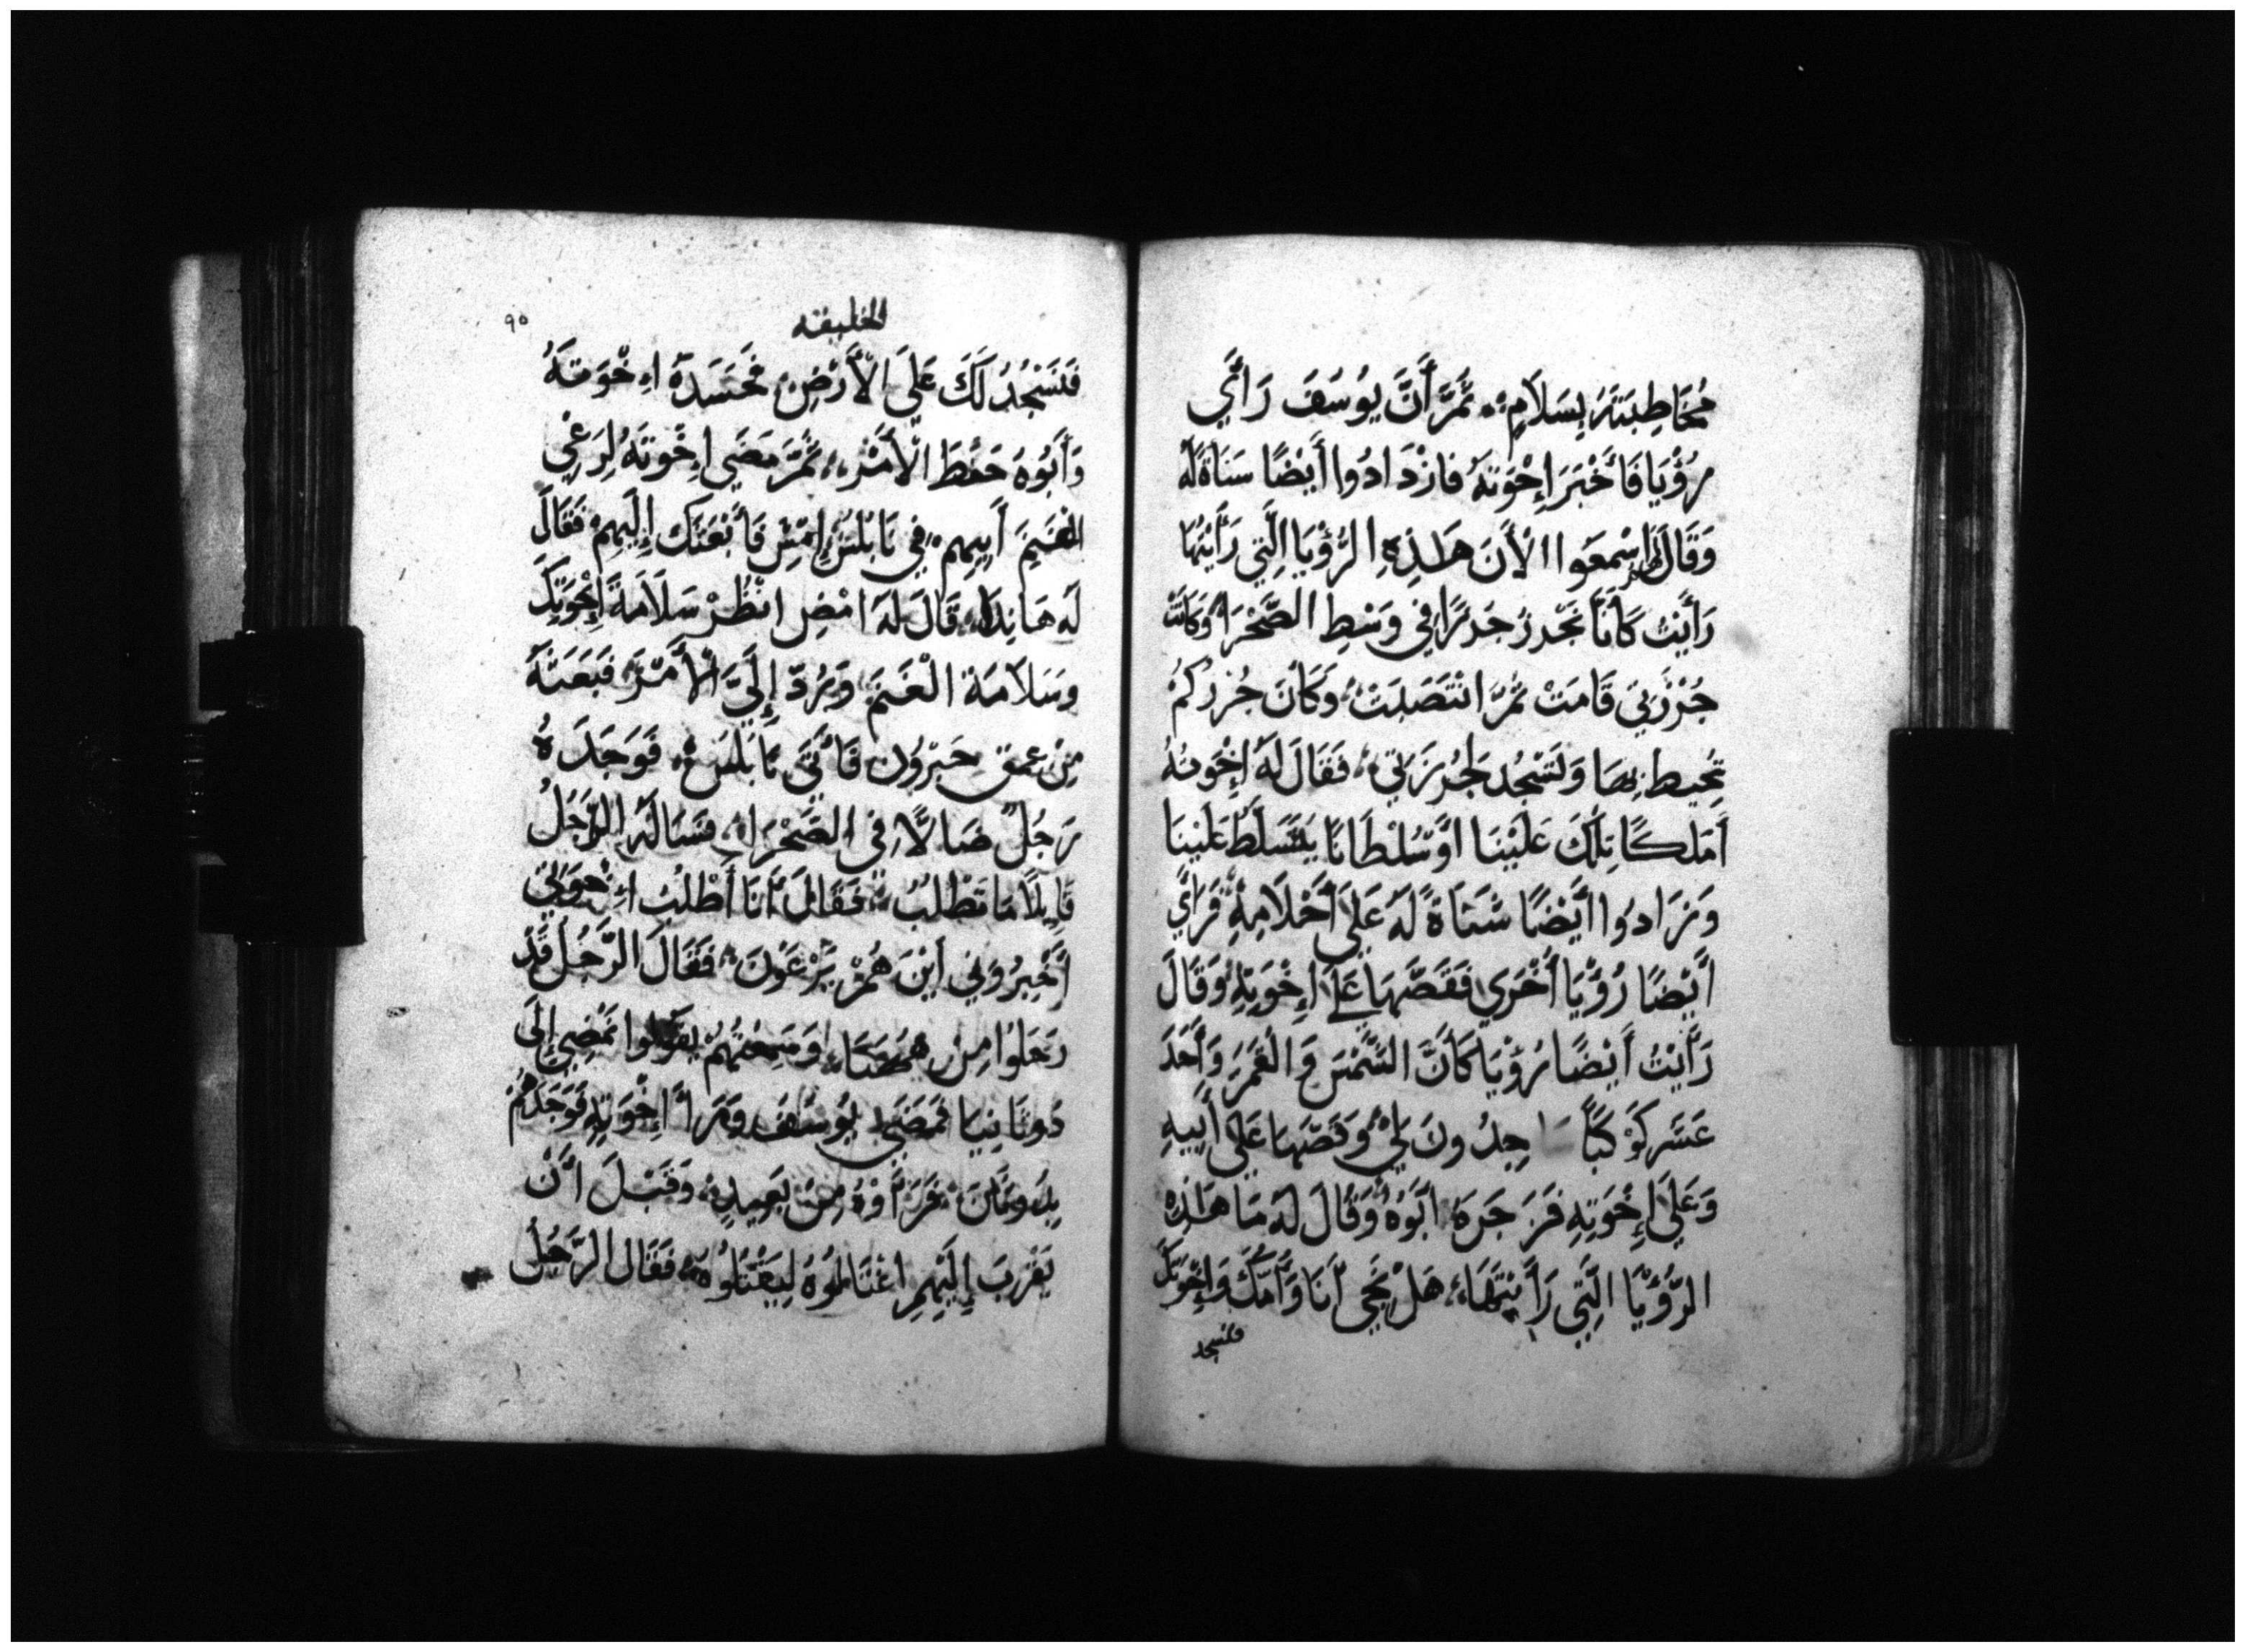 مُخَاطِبَتَهُ بِسَلَامٍ ثُمَّ أَنَّ يُوسَفَ رَأَي
رُؤْيَا فَأَخْبَرَ إِخْوَتَهُ فَازْدَادُوا أَيْضًا سَنَاةً لَهُ
وَقَالَ لَهُمْ اِسْمَعَوا الأَنَ هَذِهِ الرُّؤْيَا الَّتِي رَأَيْتُهَا
رَأَيْتُ كَأَنَّا نَجْرزُ جَرزًا فِي وَسْطِ الصَّحْرَا وَكَأَنَّ
جُرْزَتِي قَامَتْ ثُمَّ انْتَصَبَتْ وَكَانَ جُرزكُمْ
تُحِيط بِهَا وَتَسْجُد لِجُرزَتِي فَقَالَ لَهُ إِخْوَتُهُ
أَمَلكًا تَمْلِكَ عَلَيْنَا أَوْ سُلْطَانًا يَتَسَلَّطُ عَلَيْنَا
وَزَادُوا أَيْضًا شَنَاةً لَهُ عَلَى أَحْلَامِهِ فَرَأَي
أَيْضًا رُؤْيَا أُخْرَي فَقَصَّهَا عَلَى إِخْوَتِهِ وَقَالَ
رَأَيْتُ أَيْضًا رُؤْيَا كَأَنَّ الشَّمْسَ وَالْقَمَرَ وَأَحَدَ
عَشَر كَوْكَبًا سَاجِدُونَ لِي وَقَصَّهَا عَلَى أَبِيهِ
وَعَلَى إِخْوَتِهِ فَزَجَرَهُ أَبُوهُ وَقَالَ لَهُ مَا هَذِهِ
الرُّؤْيَا الَّتِي رَأَيْتَهَا هَلْ نَجِي أَنَا وَأُمّكَ وَإِخْوَتكَ
فتسجد
الخليقه
٩٥
فَنَسْجُدُ لَكَ عَلَى الْأَرْضِ فَحَسَدَهُ اِخْوَتَهُ
وَأَبُوهُ حَفِظَ الْأَمْرَ ثُمَّ مَضَي إِخْوتَهُ لِرَعْيِ
الغَنَمِ أَبِيهِم فِي نَابْلس إِمْضِ فَأَبْعَثكَ إِلَيْهِمْ فَقَالَ
لَه هَانذَا قَالَ لَهُ امْضِ انْظُرْ سَلَامَةَ إِخْوَتِكَ
وسَلَامَة الْغَنَمَ وَرُدّ إِلَيَّ الْأَمْرَ فَبَعَثَهُ
مِنْ عمق حَبْرُون فَأَتَي نَابلسَ فَوَجَدَهُ
رَجُلٌ ضَالًّا فِي الصَّحْرَا فَسَالَهُ الرَّجُلُ
قَايِلًا مَا تَطْلُبُ فَقَالَ أَنَا أَطْلُبُ إِخْوَتِي
أَخْبِرُونِي أَيْنَ هُمْ يَرْعَوْنَ فَقَالَ الرَّجُل قَدْ
رَحَلُوا مِنْ هَهُنَا وَسَمِعْتُهُمْ يقولوا نَمْضِي إِلَى
دُوثَانِيَا فَمَضَي يُوسُفَ وَرَا إِخْوَتِهِ فَوَجَدَهُمْ
بِدوثَانَ فَرَأَوْهُ مِنْ بَعِيدٍ وَقَبْلَ أَنْ
يَقْرُبَ إِلَيْهِمِ اغْتَالُوهُ لِيَقْتَلُوهُ فَقَالَ الرَّجُلُ